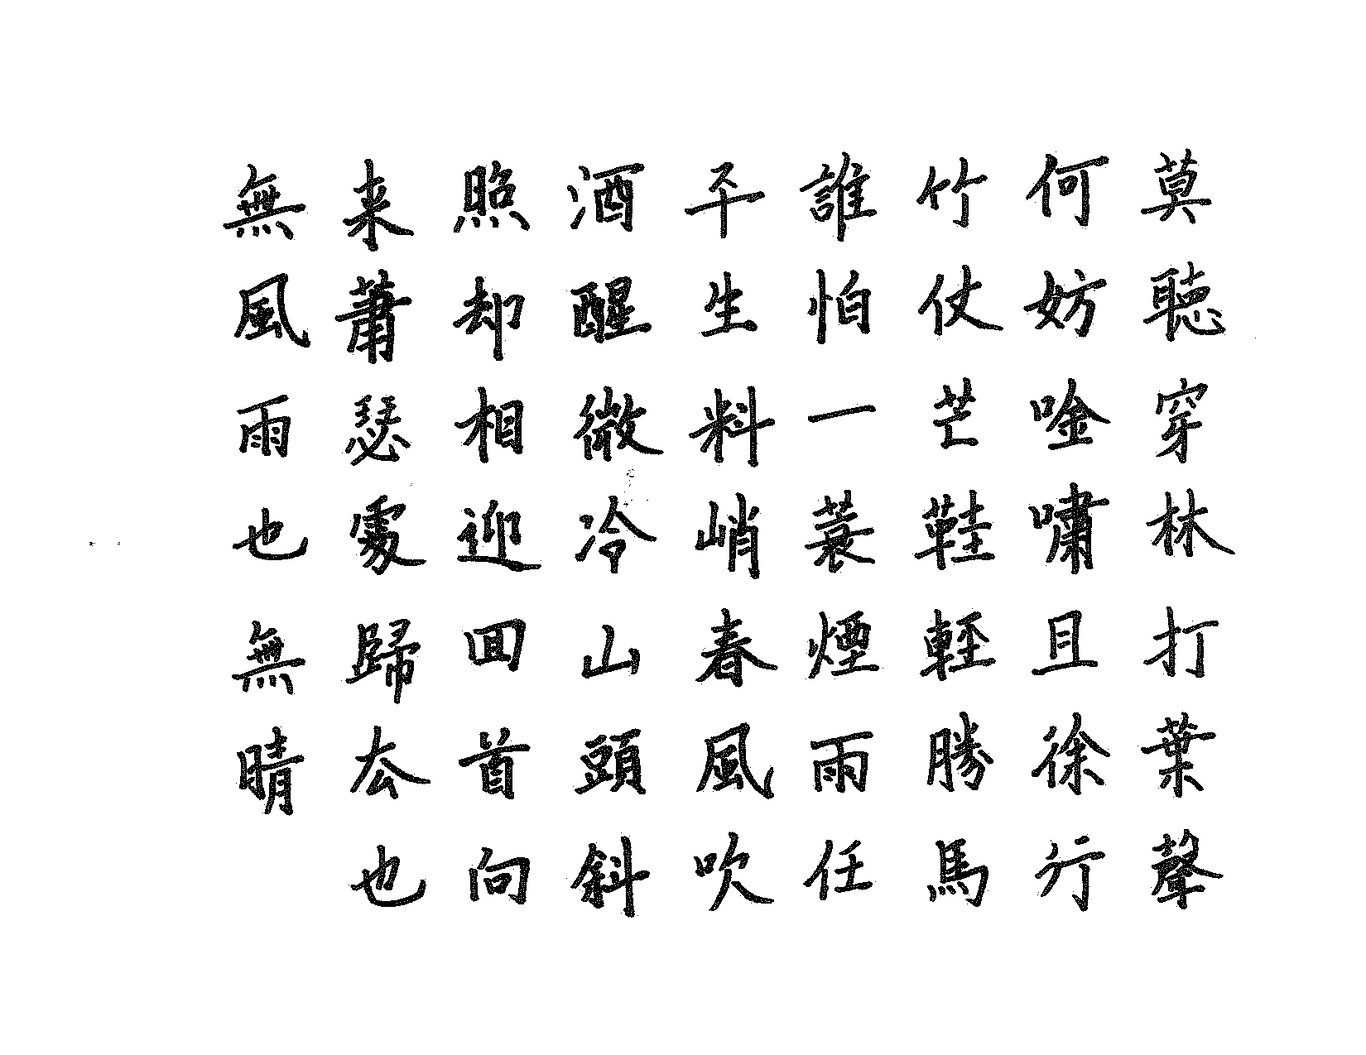 莫聴穿林打葉聲
何妨唫嘯且徐行
竹仗芒鞋輕勝馬
誰怕一蓑煙雨任
平生料峭春風吹
酒醒微冷山頭斜
照却相迎囬首向
来蕭瑟處歸厺也
無風雨也無晴